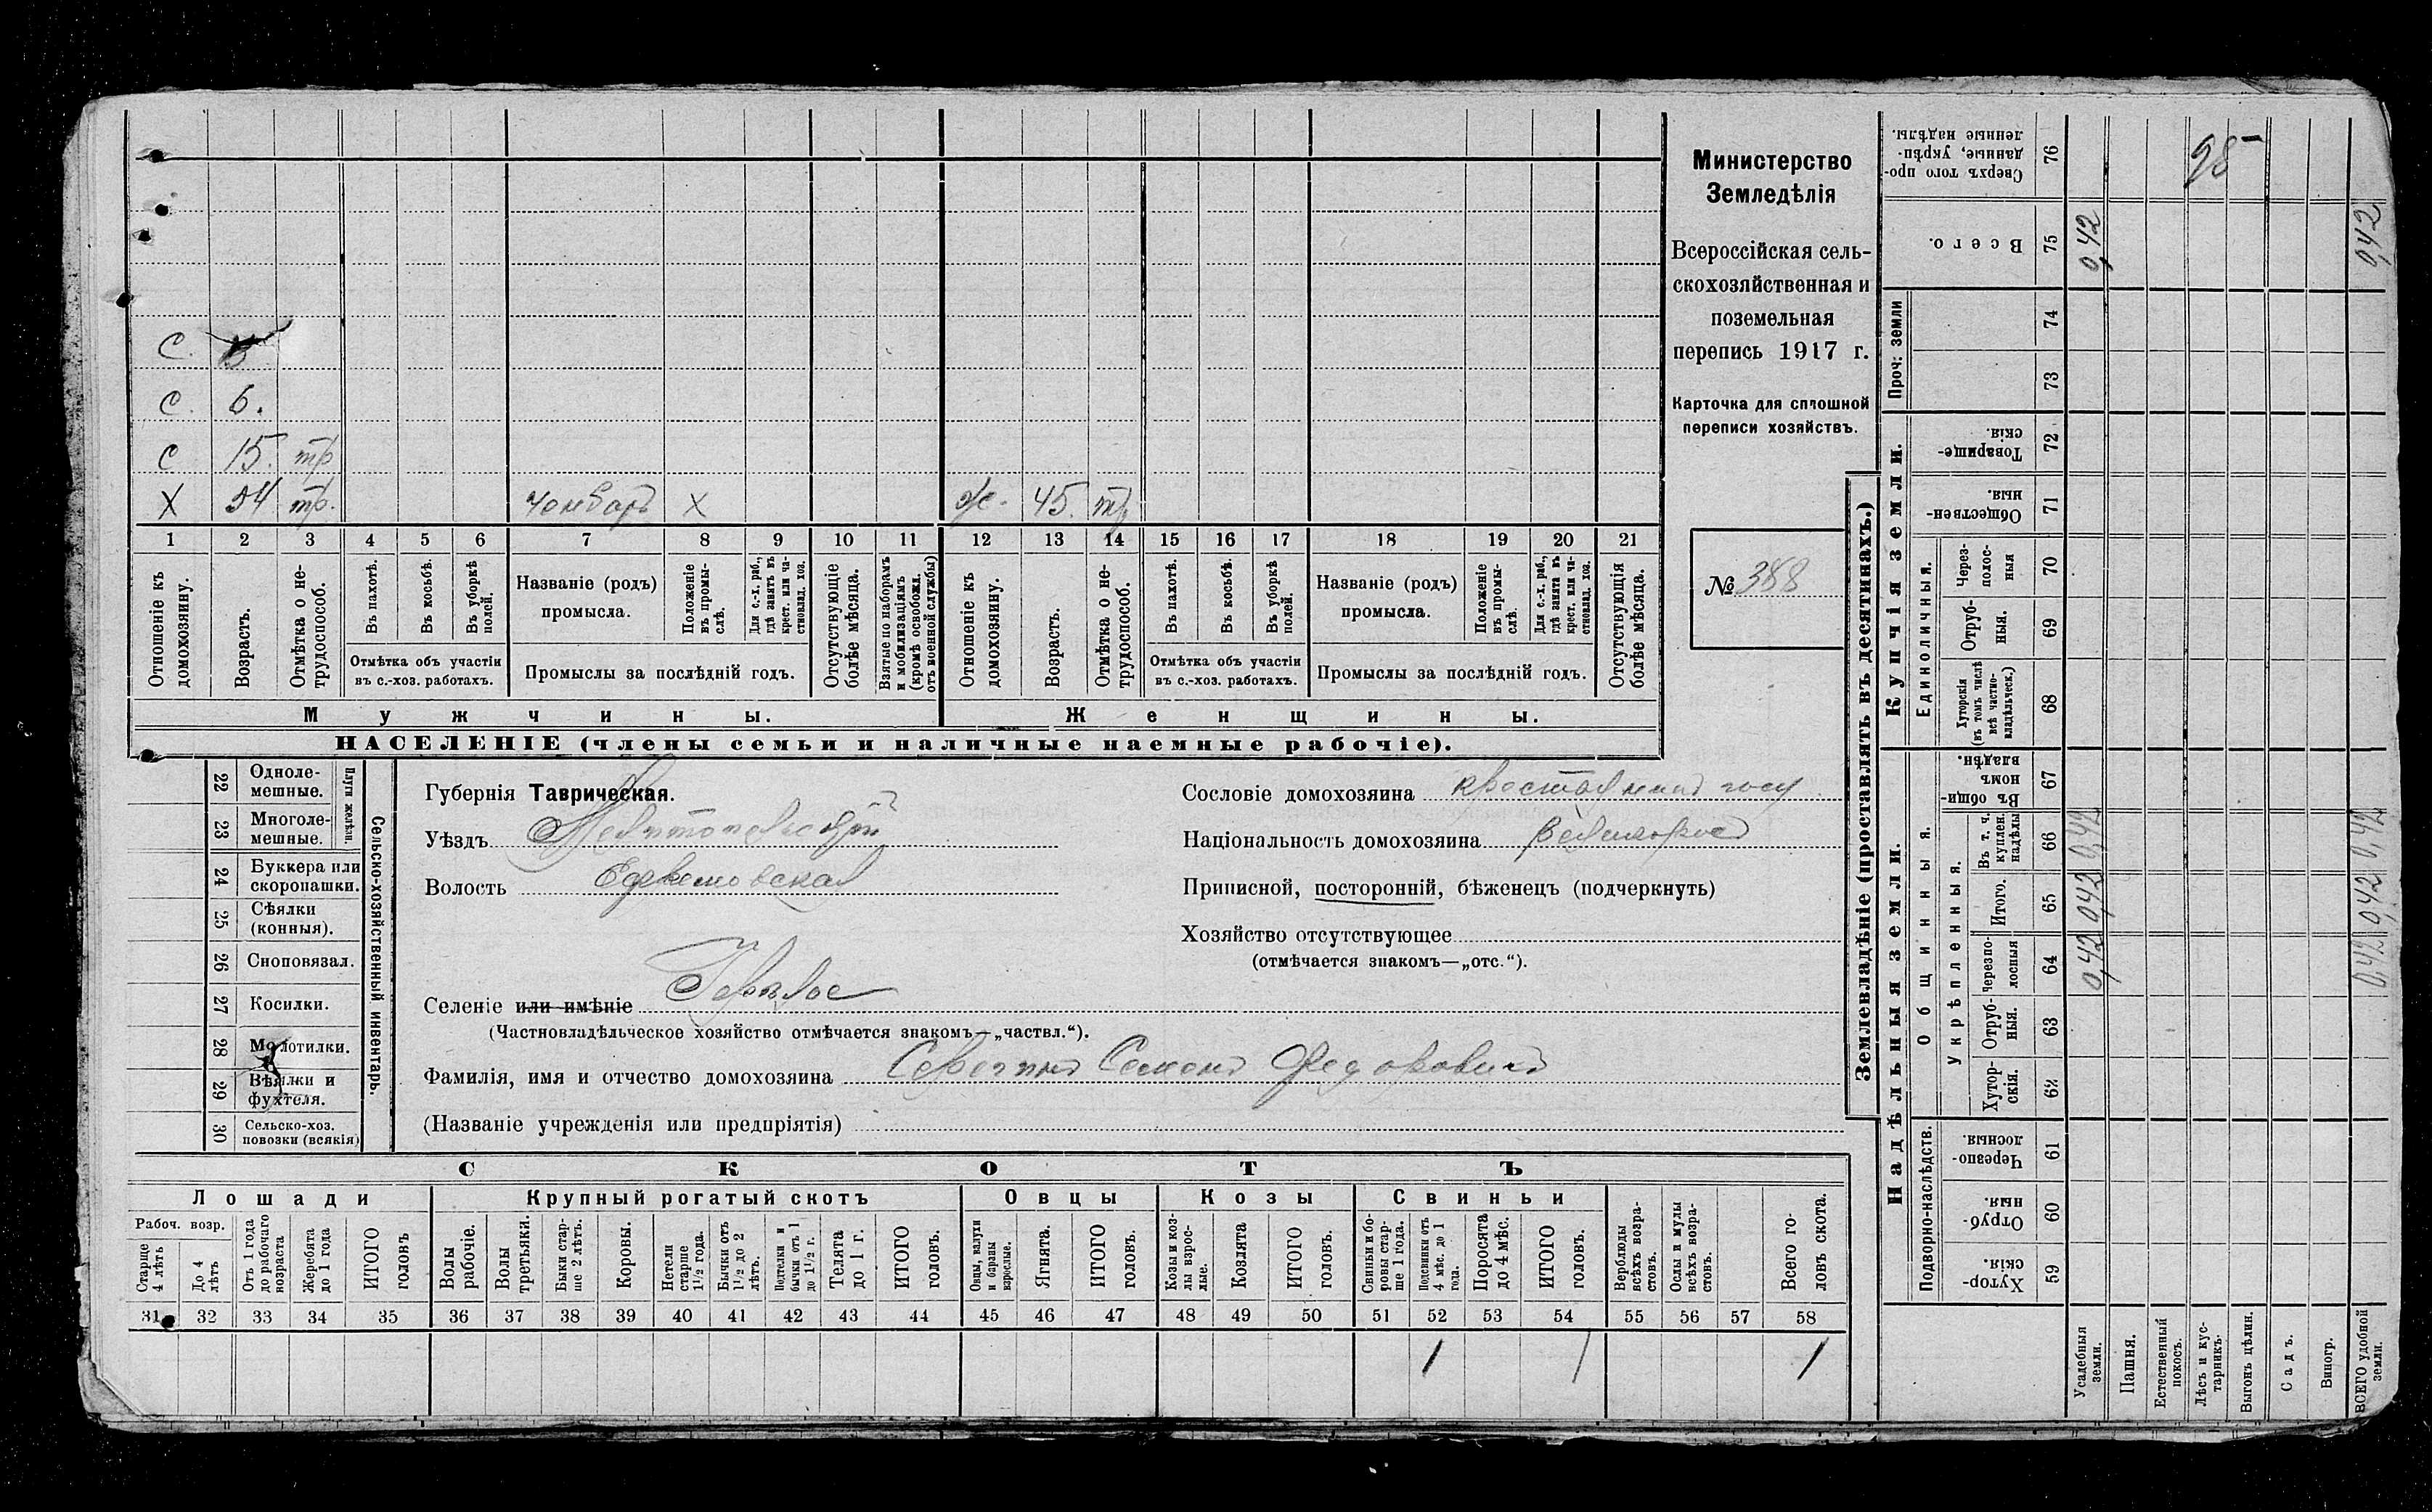 Министерство
Земледѣлія
Всероссійская сель-
скохозяйственная и
поземельная
перепись 1917 г.
Карточка для сплошной
переписи хозяйствъ.
№ 388
С.
С. 6.
С 15. тр
Х 54 тр. Х
ж. 45. тр
1 2 3 4 5 6 7 8 9 10 11 12 13 14 15 16 17 18 19 20 21
Отношеніе къ домохозяину.
Возрастъ.
Отмѣтка о не-трудоспособ.
Въ пахотѣ.
Въ косьбѣ.
Въ уборкѣ полей.
Отмѣтка объ участіи
въ с.-хоз. работахъ.
Названіе (родъ)
промысла.
Положеніе въ промы-слѣ.
Для с.-х. раб., гдѣ занятъ въ крест. или ча-стновлад. хоз.
Промыслы за послѣдній годъ.
Отсутствующіе болѣе мѣсяца.
Взятые по наборамъ и мобилизаціямъ (кромѣ освобожд. отъ военной службы)
Отношеніе къ домохозяину.
Возрастъ.
Отмѣтка о не-трудоспособ.
Въ пахотѣ.
Въ косьбѣ.
Въ уборкѣ полей.
Отмѣтка объ участіи
въ с.-хоз. работахъ.
Названіе (родъ)
промысла.
Положеніе въ промы-слѣ.
Для с.-х. раб., гдѣ занята въ крест. или ча-стновлад. хоз.
Промыслы за послѣдній годъ.
Отсутствующія болѣе мѣсяца.
Мужчины.
Женщины.
НАСЕЛЕНІЕ (члены семьи и наличные наемные рабочіе).
Сельско-хозяйственный инвентарь.
Плуги желѣзн.
22 Одноле-
мешные.
23 Многоле-
мешные.
24 Буккера или
скоропашки.
25 Сѣялки
(конныя).
26 Сноповязал.
27 Косилки.
28 Молотилки.
29 Вѣялки и
фухтеля.
30 Сельско-хоз.
повозки (всякія)
Губернія Таврическая.
Уѣздъ Мелитопольскій
Волость
Селеніе или имѣніе
(Частновладѣльческое хозяйство отмѣчается знакомъ—„частвл.“).
Фамилія, имя и отчество домохозяина Семенъ Федоровичъ
(Названіе учрежденія или предпріятія)
Сословіе домохозяина
Національность домохозяина великоросъ
Приписной, посторонній, бѣженецъ (подчеркнуть)
Хозяйство отсутствующее
(отмѣчается знакомъ—„отс.“).
СКОТЪ
Лошади
Крупный рогатый скотъ
Овцы
Козы
Свиньи
Рабоч. возр.
Старше 4 лѣтъ
До 4 лѣтъ
Отъ 1 года до рабочаго возраста
Жеребята до 1 года
ИТОГО головъ
Волы рабочіе.
Волы третьяки.
Быки стар-ше 2 лѣтъ.
Коровы.
Нетели старше 1½ года.
Бычки отъ 1½ до 2 лѣтъ.
Подтелки и бычки отъ 1 до 1½ г.
Телята до 1 г.
ИТОГО головъ.
Овцы, валухи и бараны взрослые.
Ягнята.
ИТОГО головъ.
Козы и коз-лы взрос-лые.
Козлята
ИТОГО головъ.
Свиньи и бо-ровы стар-ше 1 года.
Подсвинки отъ 4 мѣс. до 1 года.
Поросята до 4 мѣс.
ИТОГО головъ.
Верблюды всѣхъ возра-стовъ.
Ослы и мулы всѣхъ возра-стовъ.
Всего го-ловъ скота.
31 32 33 34 35 36 37 38 39 40 41 42 43 44 45 46 47 48 49 50 51 52 53 54 55 56 57 58
1 1 1
Землевладѣніе (проставлять въ десятинахъ.)
Надѣльныя земли.
Купчія земли.
Проч: земли
Подворно-наслѣдств.
Общинныя.
Укрѣпленныя.
Единоличныя.
Хутор-скія. 59
Отруб-ныя. 60
Черезпо-лосныя. 61
Хутор-скія. 62
Отруб-ныя. 63
Черезпо-лосныя 64
Итого. 65
Въ т. ч. куплен. надѣлы 66
Въ общин-номъ владѣн. 67
Хуторскія (въ томъ числѣ всѣ частно-владѣльческ.) 68
Отруб-ныя. 69
Через-полос-ныя 70
Обществен-ныя. 71
Товарище-скія. 72
73
74
Всего. 75
Сверхъ того про-данные, укрѣп-ленные надѣлы. 76
Усадебныя земли. 0,42 0,42 0,42 0,42
Пашня.
Естественный покосъ.
Лѣсъ и кус-тарникъ.
Выгонъ цѣлин.
Садъ.
Виногр.
ВСЕГО удобной земли. 0,42 0,42 0,42 0,42